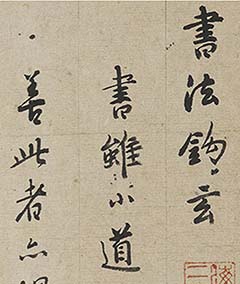 書法鈎玄
書雖小道
善此者亦